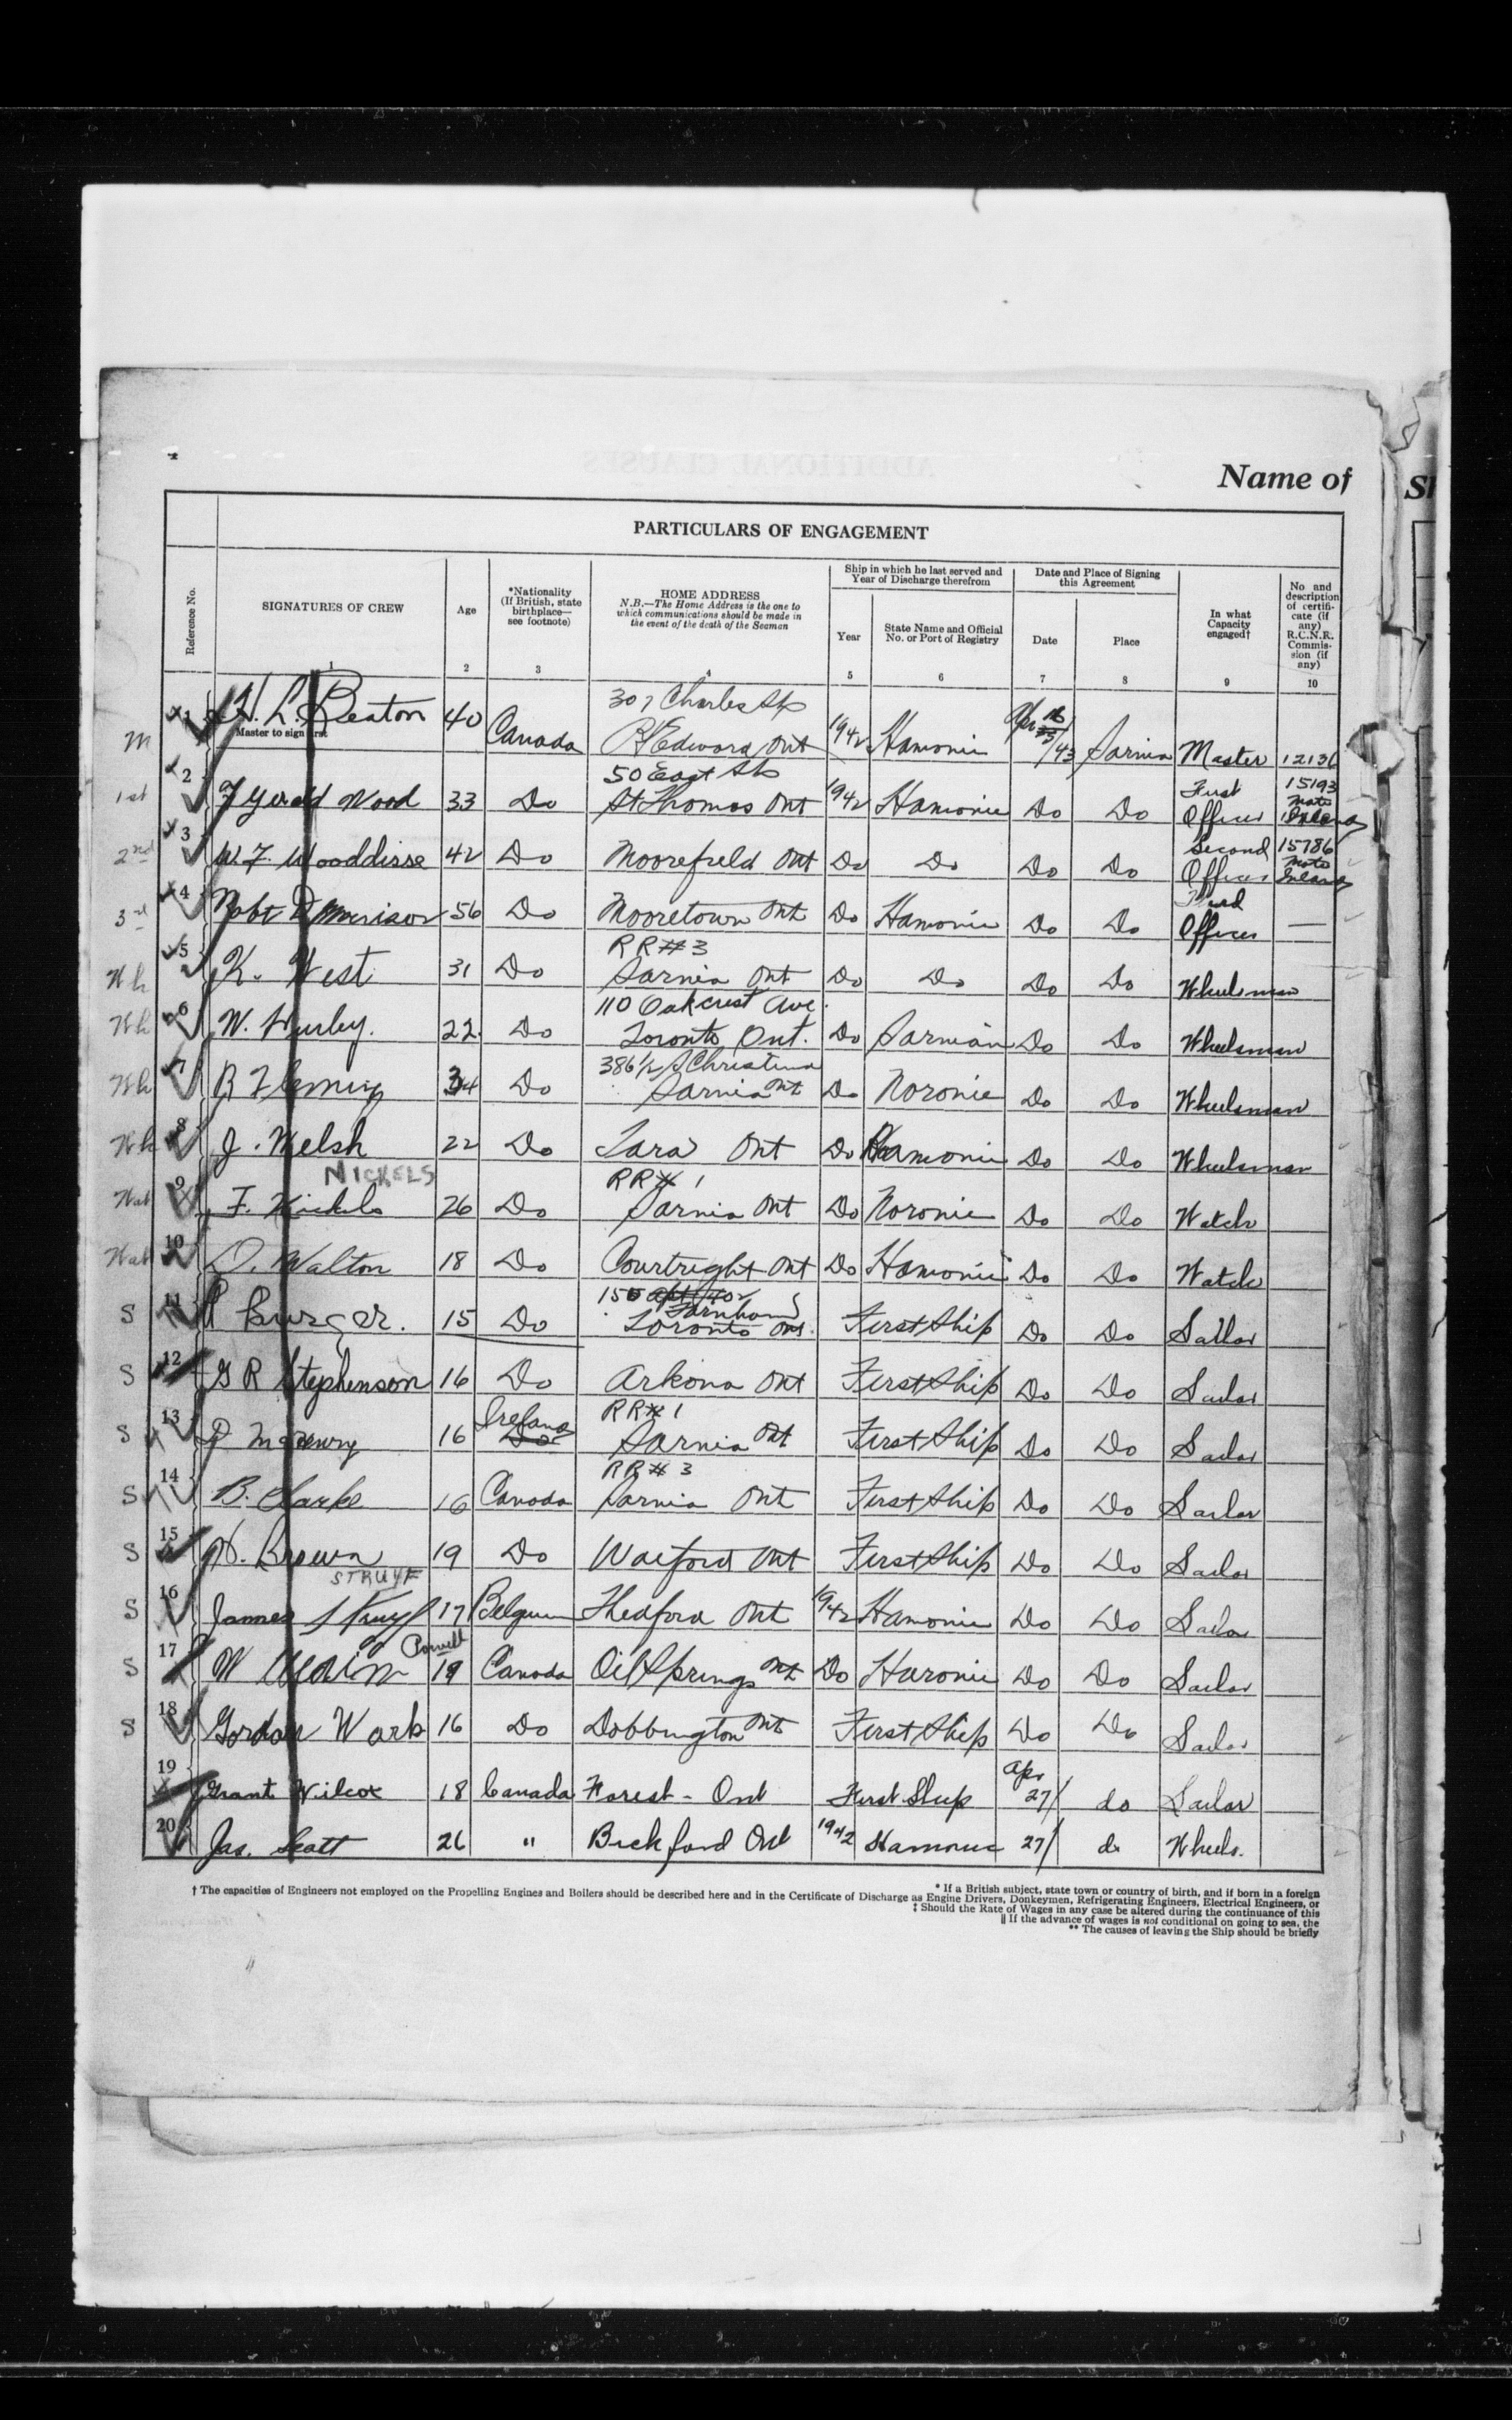 4
ADDITIONAL CLAUSES
Name of
PARTICULARS OF ENGAGEMENT
Reference No.
SIGNATURES OF CREW
1
Age
2
*Nationality
(If British, state
birthplace—
see footnote)
3
HOME ADDRESS
N.B.—The Home Address is the one to
which communications should be made in
the event of the death of the Seaman
4
Ship in which he last served and
Year of Discharge therefrom
Year
5
State Name and Official
No. or Port of Registry
6
Date and Place of Signing
this Agreement
Date
7
Place
8
In what
Capacity
engaged†
9
No and
description
of certifi-
cate (if
any)
R.C.N.R.
Commis-
sion (if
any)
10
307 Charles St
M 1 H. L. Beaton 40 Canada Pt Edward Ont 1942 Hamonic Apr 16/43 Sarnia Master 12136
Master to sign first
50 East St First 15193
1st 2 F Gerald Wood 33 Do St Thomas Ont 1942 Hamonic Do Do Officer Mate Inland
Second 15786
2nd 3 W. F. Wooddisse 42 Do Moorefield Ont Do Do Do Do Officer Mate Inland
Third
3rd 4 Robt D Morrison 56 Do Mooretown Ont Do Hamonic Do Do Officer —
RR#3
Wh 5 K. West 31 Do Sarnia Ont Do Do Do Do Wheelsman
110 Oakcrest Ave.
Wh 6 W. Hurley. 22 Do Toronto Ont. Do Sarnian Do Do Wheelsman
386½ S Christina
Wh 7 B Fleming 34 Do Sarnia Ont Do Noronic Do Do Wheelsman
Wh 8 J. Welsh 22 Do Tara Ont Do Hamonic Do Do Wheelsman
NICKELS RR# 1
Wat 9 F. Nickels 26 Do Sarnia Ont Do Noronic Do Do Watch
Wat 10 D. Walton 18 Do Courtright Ont Do Hamonic Do Do Watch
150 Apt 402
Farnham
S 11 Burger. 15 Do Toronto Ont. First Ship Do Do Sailor
S 12 G R Stephenson 16 Do Arkona Ont First Ship Do Do Sailor
Ireland RR# 1
S 13 16 Do Sarnia Ont First Ship Do Do Sailor
RR# 3
S 14 B. Clarke 16 Canada Sarnia Ont First Ship Do Do Sailor
S 15 H. Brown 19 Do Watford Ont First Ship Do Do Sailor
STRUYF
S 16 James Struyf 17 Belgium Thedford Ont 1942 Hamonic Do Do Sailor
S 17 W 19 Canada Oil Springs Ont Do Huronic Do Do Sailor
S 18 Gordon Wark 16 Do Dobbington Ont First Ship Do Do Sailor
Apr
19 Grant Wilcox 18 Canada Forest - Ont First Ship 27/ do Sailor
20 Jas. Scott 26 " Bickford Ont 1942 Hamonic 27/ do Wheels.
* If a British subject, state town or country of birth, and if born in a foreign
† The capacities of Engineers not employed on the Propelling Engines and Boilers should be described here and in the Certificate of Discharge as Engine Drivers, Donkeymen, Refrigerating Engineers, Electrical Engineers, or
‡ Should the Rate of Wages in any case be altered during the continuance of this
|| If the advance of wages is not conditional on going to sea, the
** The causes of leaving the Ship should be briefly